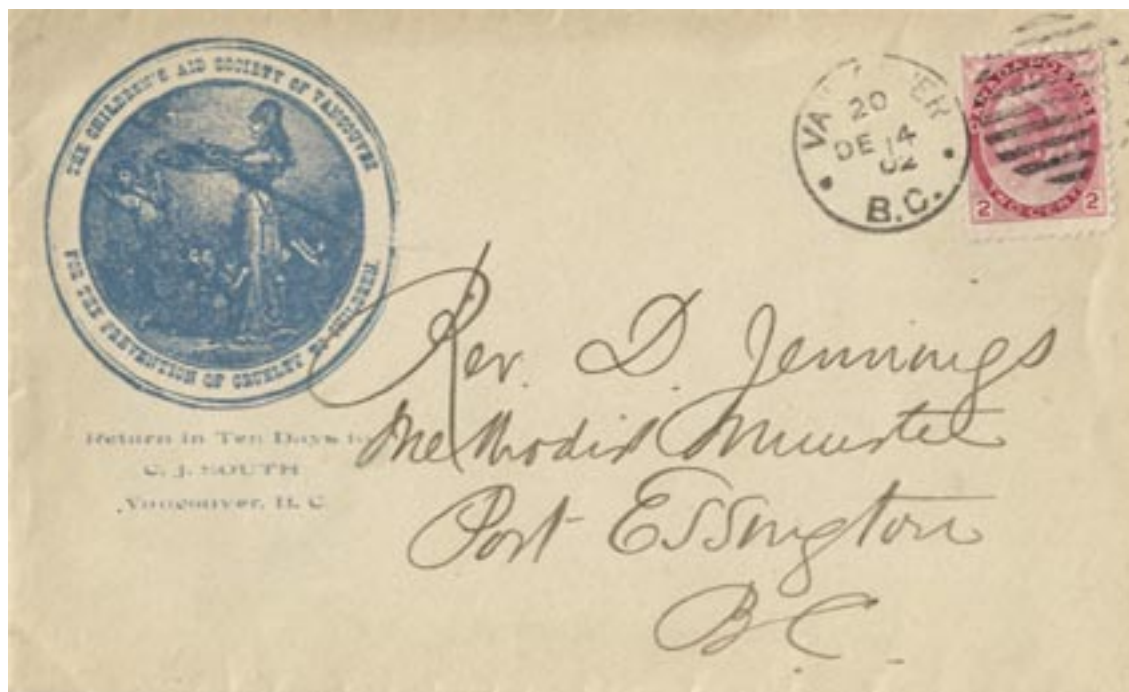 THE CHILDREN'S AID SOCIETY OF VANCOUVER
FOR THE PREVENTION OF CRUELTY TO CHILDREN
Return in Ten Days to
C. J. SOUTH
Vancouver, B. C.
VA ER
20
DE 14
02
B.C.
CANADA POSTAGE
2 TWO CENTS 2
Rev. D. Jennings
Methodist Minister
Port Essington
B.C.